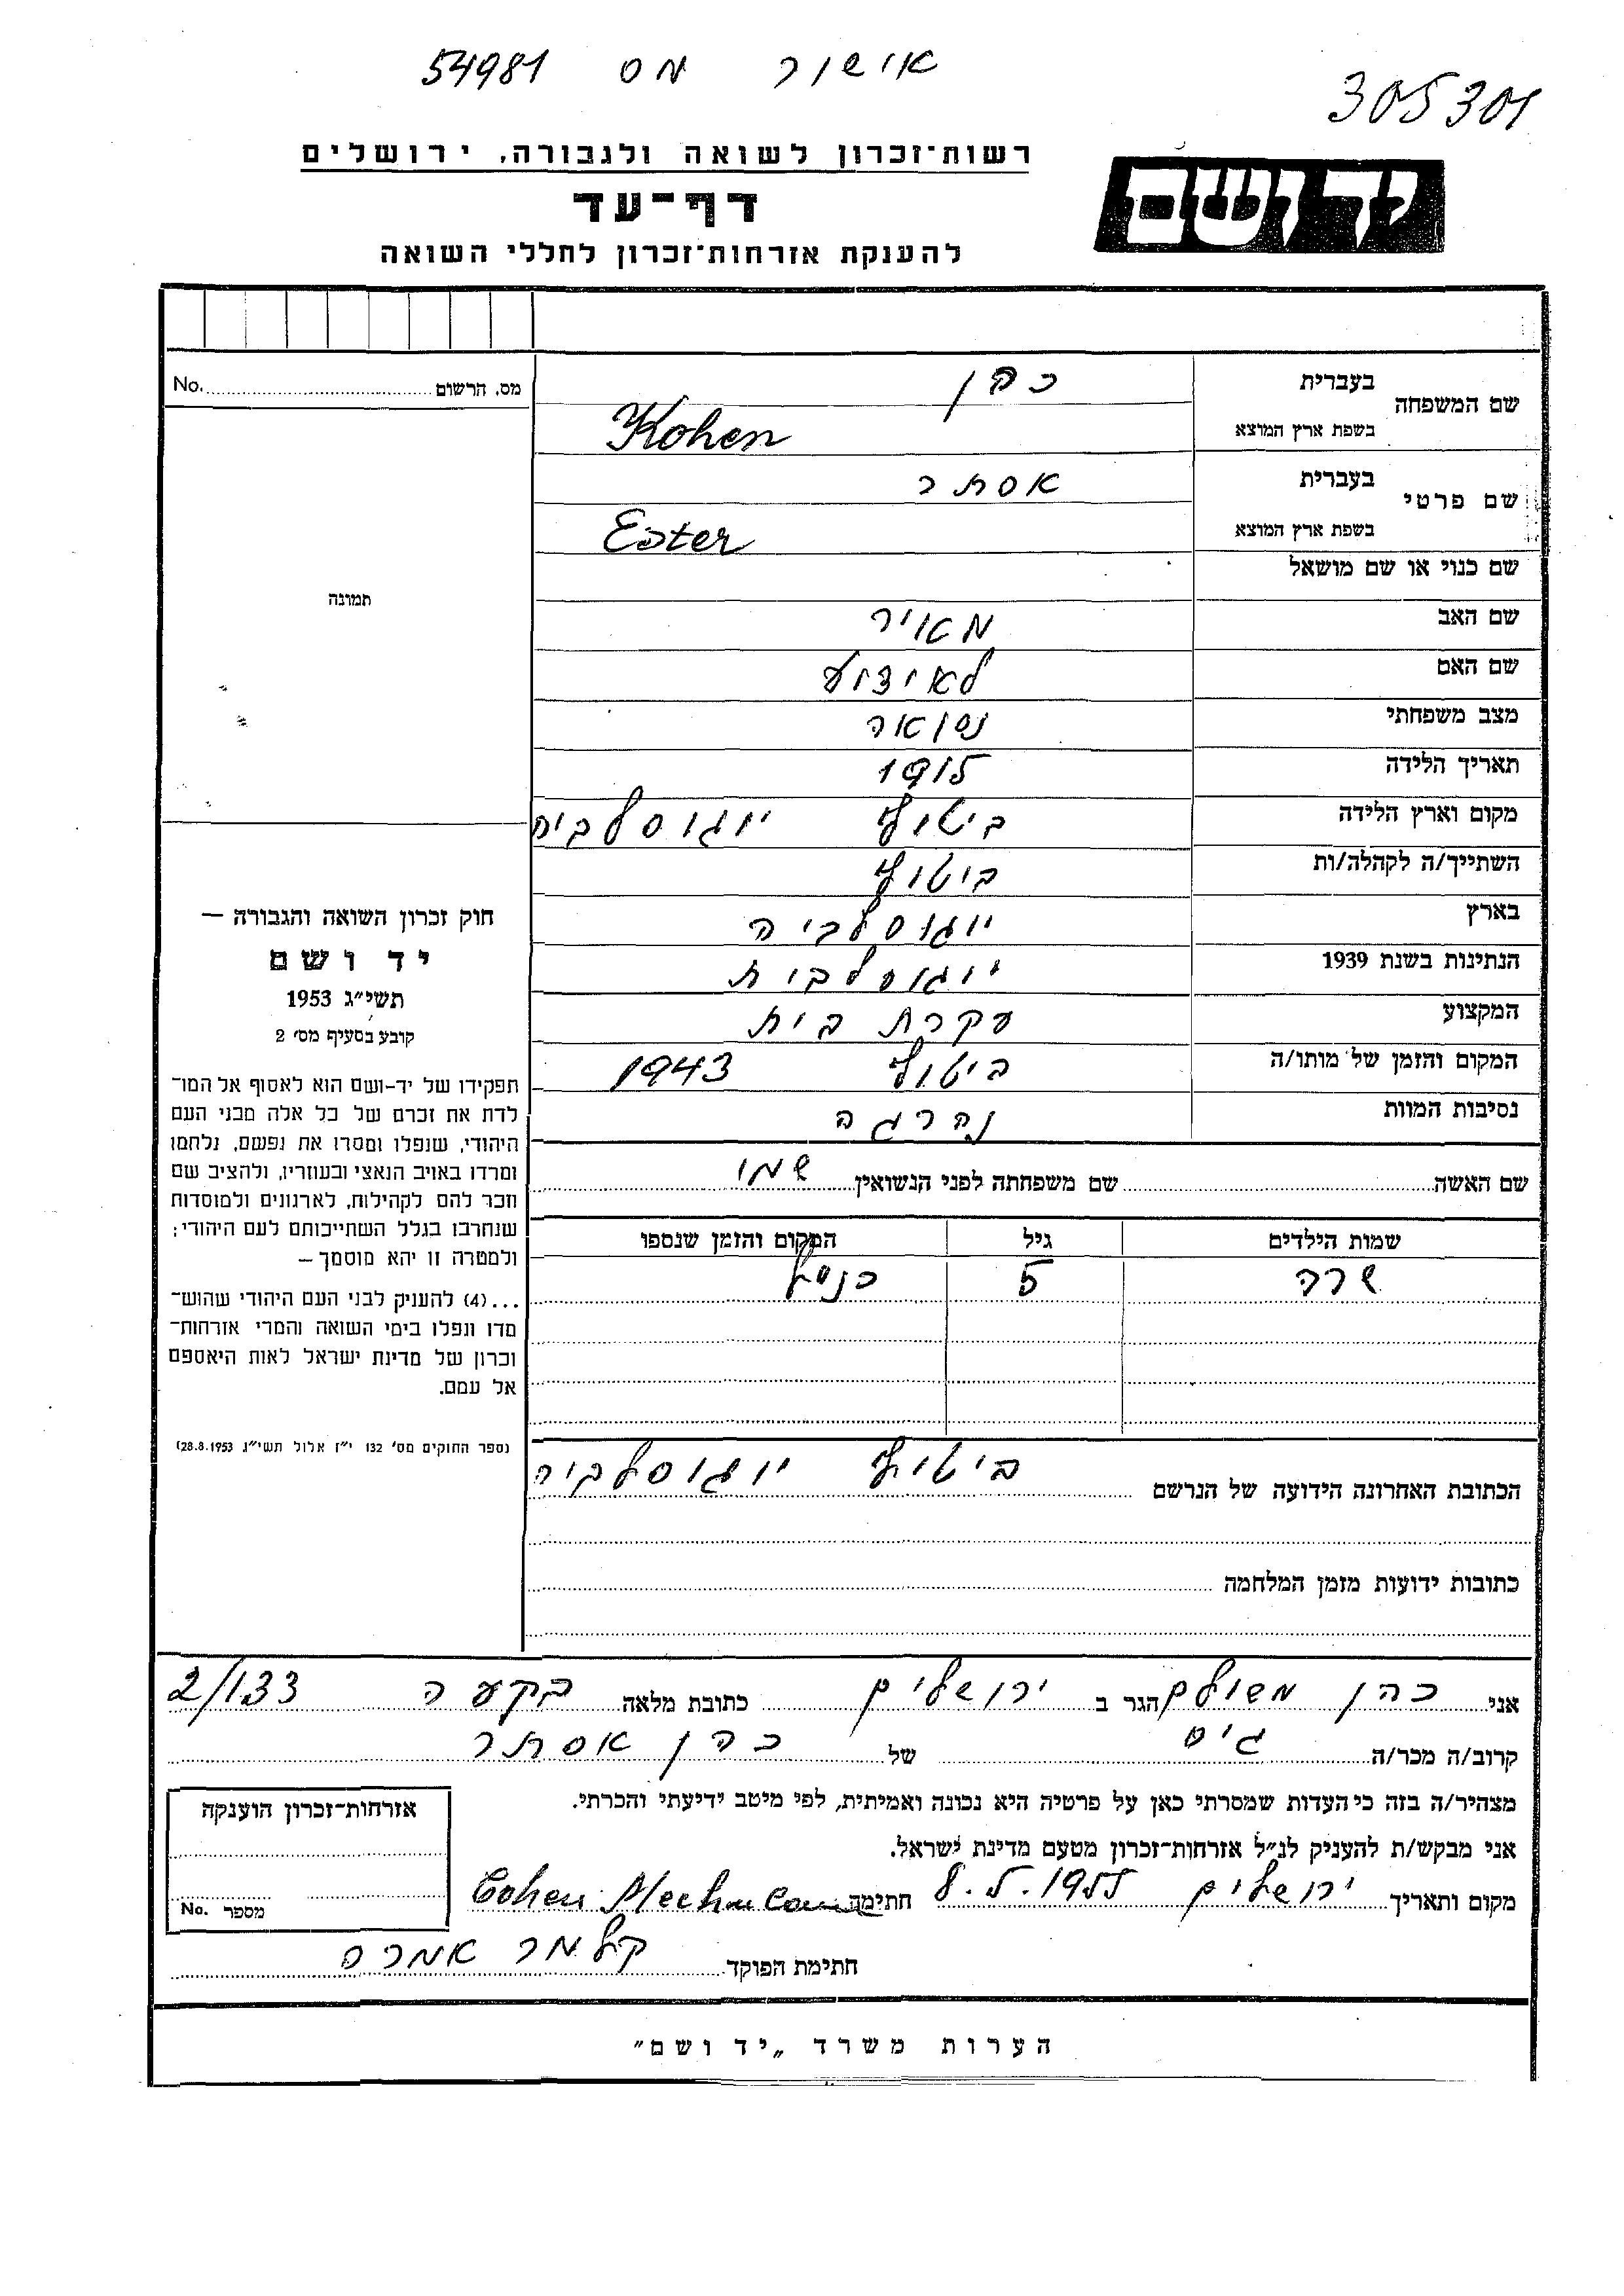 אישור מס 54981
305301
יד ושם
רשות-זכרון לשואה ולגבורה, ירושלים
דף-עד
להענקת אזרחות-זכרון לחללי השואה
מס. הרשום No.
תמונה
שם המשפחה בעברית כהן
בשפת ארץ המוצא Kohen
שם פרטי בעברית אסתר
בשפת ארץ המוצא Ester
שם כנוי או שם מושאל
שם האב מאיר
שם האם לא ידוע
מצב משפחתי נשואה
תאריך הלידה 1915
מקום וארץ הלידה ביטולי יוגוסלביה
השתייך/ה לקהלה/ות ביטולי
בארץ יוגוסלביה
הנתינות בשנת 1939 יוגוסלבית
המקצוע עקרת בית
המקום והזמן של מותו/ה ביטולי 1943
נסיבות המוות נהרגה
שם האשה שם משפחתה לפני הנשואין שמו
שמות הילדים גיל המקום והזמן שנספו
שרה 5 כנ"ל
הכתובת האחרונה הידועה של הנרשם ביטולי יוגוסלביה
כתובות ידועות מזמן המלחמה
חוק זכרון השואה והגבורה —
יד ושם
תשי״ג 1953
קובע בסעיף מס׳ 2
תפקידו של יד-ושם הוא לאסוף אל המו־
לדת את זכרם של כל אלה מבני העם
היהודי, שנפלו ומסרו את נפשם, נלחמו
ומרדו באויב הנאצי ובעוזריו, ולהציב שם
וזכר להם לקהילות, לארגונים ולמוסדות
שנחרבו בגלל השתייכותם לעם היהודי;
ולמטרה זו יהא מוסמך —
...(4) להעניק לבני העם היהודי שהוש־
מדו ונפלו בימי השואה והמרי אזרחות־
זכרון של מדינת ישראל לאות היאספם
אל עמם.
(ספר החוקים מס׳ 132 י״ז אלול תשי״ג 28.8.1953)
אני כהן משולם הגר ב ירושלים כתובת מלאה בקעה 2/133
קרוב/ה מכר/ה גיס של כהן אסתר
מצהיר/ה בזה כי העדות שמסרתי כאן על פרטיה היא נכונה ואמיתית, לפי מיטב ידיעתי והכרתי.
אני מבקש/ת להעניק לנ״ל אזרחות-זכרון מטעם מדינת ישראל.
מקום ותאריך ירושלים 8.5.1955 חתימה Cohen
חתימת הפוקד קלמר אמרה
אזרחות-זכרון הוענקה
מספר No.
הערות משרד „יד ושם״